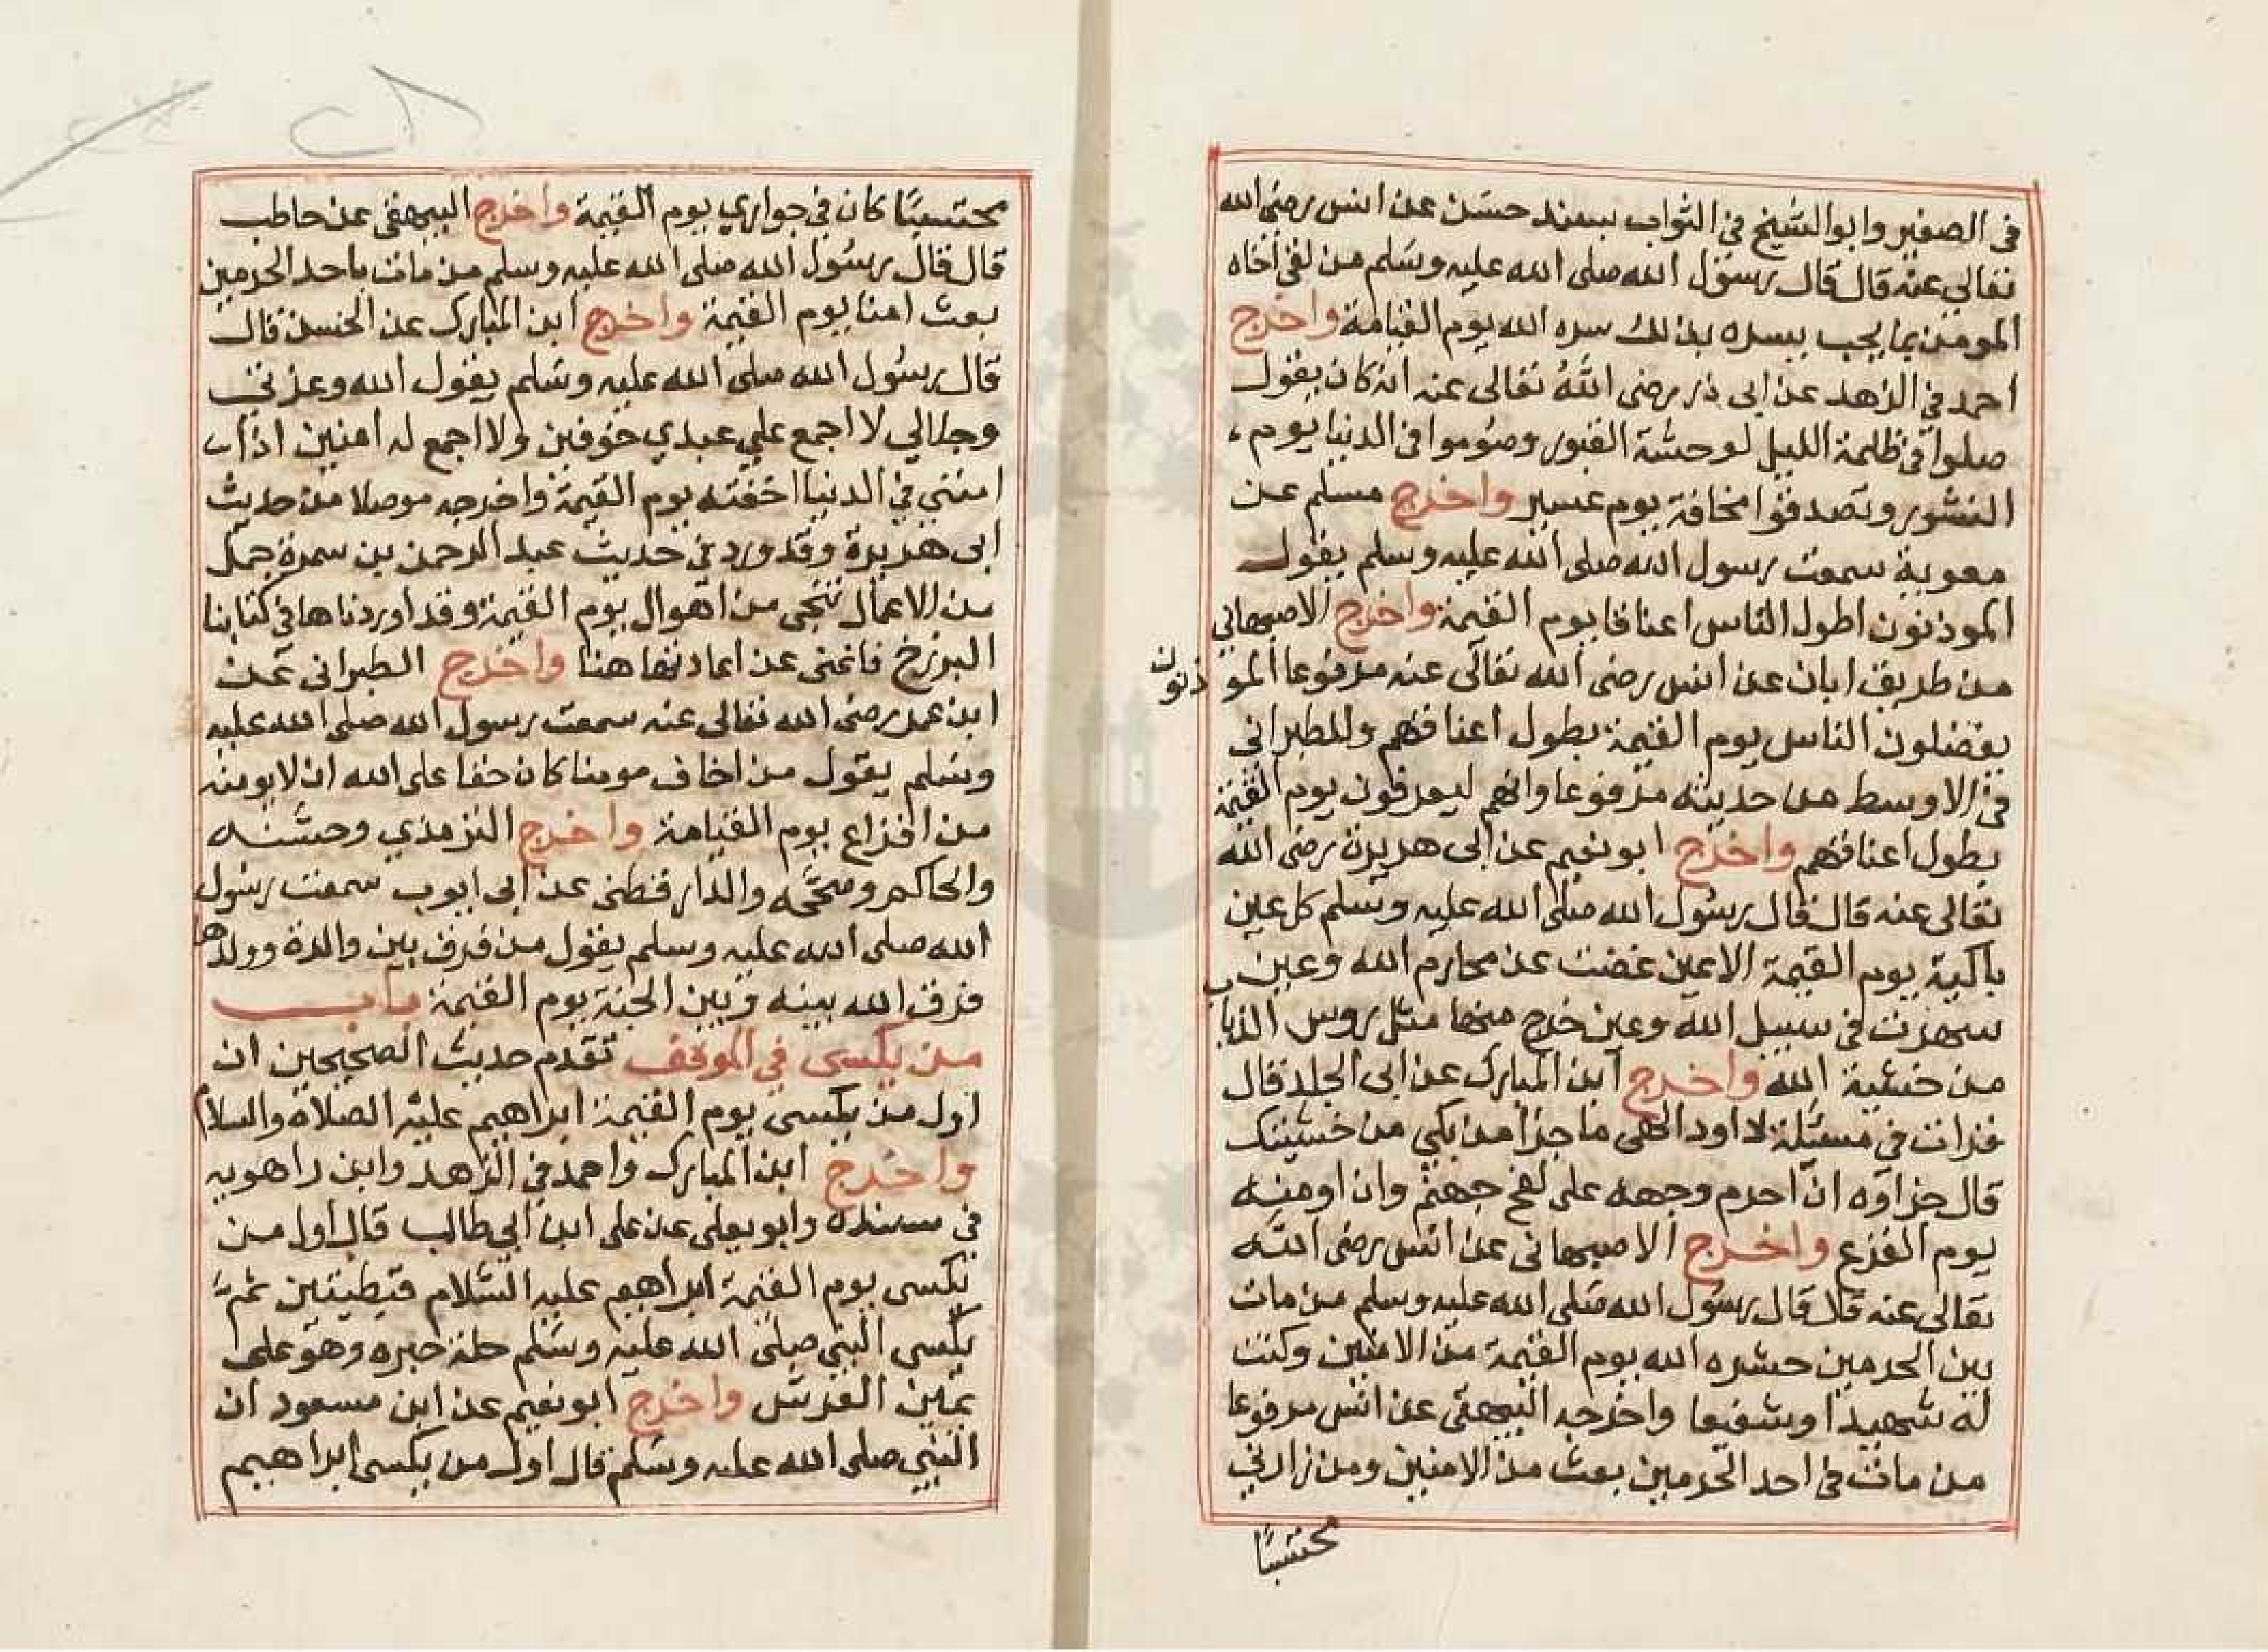 في الصغير وابو الشيخ في الثواب بسند حسن عن انس رضي الله
تعالي عنه قال قال رسول الله صلى الله عليه وسلم من لقي اخاه
المومن بما يحب ليسره بذلك سره الله يوم القيامة واخرج
احمد في الزهد عن ابي ذر رضى الله تعالى عنه انه كان يقول
صلوا في ظلمة الليل لوحشة القبور وصوموا في الدنيا يوم
النشور وتصدقوا مخافة يوم عسير واخرج مسلم عن
معوية سمعت رسول الله صلى الله عليه وسلم يقول
الموذنون اطول الناس اعناقا يوم القيمة واخرج الاصبهاني
من طريق ابان عن انس رضى الله تعالى عنه مرفوعا الموذنون
يفضلون الناس يوم القيمة بطول اعناقهم وللطبراني
في الاوسط من حديثه مرفوعا وانهم ليعرفون يوم القيمة
بطول اعناقهم واخرج ابو نعيم عن ابى هريرة رضى الله
تعالى عنه قال قال رسول الله صلى الله عليه وسلم كل عين
باكية يوم القيمة الا عين غضت عن محارم الله وعين
سهرت في سبيل الله وعين خرج منها مثل روس الذباب
من خشية الله واخرج ابن المبارك عن ابى الجلد قال
قرات في مسئلة لداود الهى ما جزا من بكي من خشيتك
قال جزاوه ان احرم وجهه على لفح جهنم وان اومنه
يوم الفزع واخرج الاصبهاني عن انس رضى الله
تعالى عنه قلا قال رسول الله صلى الله عليه وسلم من مات
بين الحرمين حشره الله يوم القيمة من الامنين وكنت
له شهيدا وشفيعا واخرجه البيهقي عن انس مرفوعا
من مات في احد الحرمين بعث من الامنين ومن زارني
محتسبًا
محتسبًا كان في جواري يوم القيمة واخرج البيهقي عن حاطب
قال قال رسول الله صلى الله عليه وسلم من مات باحد الحرمين
بعث امنا يوم القيمة واخرج ابن المبارك عن الحسن قال
قال رسول الله صلى الله عليه وسلم يقول الله وعزتي
وجلالي لا اجمع علي عبدي خوفين ولا اجمع له امنين اذا
امنني في الدنيا اخفته يوم القيمة واخرجه موصلا من حديث
ابى هريرة وقد ورد في حديث عبد الرحمن بن سمرة جمل
من الاعمال تنجى من اهوال يوم القيمة وقد اوردناها في كتابنا
البرزخ فاغنى عن اعادتها هنا واخرج الطبرانى عن
ابن عمر رضى الله تعالى عنه سمعت رسول الله صلى الله عليه
وسلم يقول من اخاف مومنا كان حقا على الله ان لا يومنه
من افزاع يوم القيامة واخرج الترمذي وحسنه
والحاكم وصححه والدارقطنى عن ابى ايوب سمعت رسول
الله صلى الله عليه وسلم يقول من فرق بين والدة وولدها
فرق الله بينه وبين الجنة يوم القيمة باب
من يكسى في الموقف تقدم حديث الصحيحين ان
اول من يكسى يوم القيمة ابراهيم عليه الصلاة والسلام
واخرج ابن المبارك واحمد في الزهد وابن راهويه
في مسنده وابو يعلى عن على ابن ابي طالب قال اول من
يكسى يوم القيمة ابراهيم عليه السلام قبطيتين ثم
يكسى النبي صلى الله عليه وسلم حلة حبره وهو على
يمين العرش واخرج ابو نعيم عن ابن مسعود ان
النبي صلى الله عليه وسلم قال اول من يكسى ابراهيم